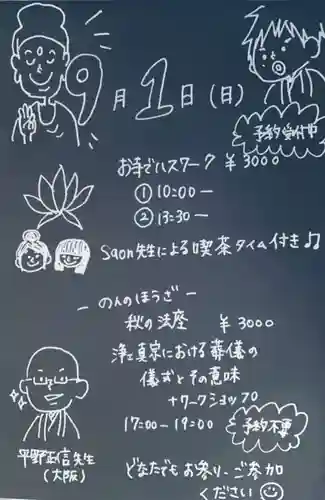 9月1日(日)
予約受付中
お寺でハスワーク ¥3000
①10:00ー
②13:30ー
Saon先生による喫茶タイム付き♫
ーのんのほうざー
秋の法座 ¥3000
浄土真宗における葬儀の
儀式とその意味
+ワークショップ
17:00-19:00
予約不要
平野正信先生
(大阪)
どなたでもお参り、ご参加
ください